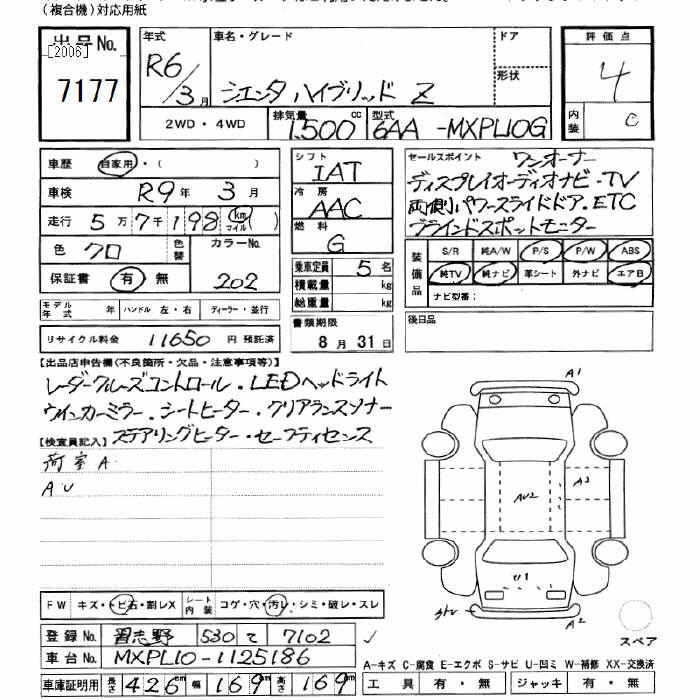 (複合機)対応用紙
出品No.
[2006]
7177
年式
R6/3月
車名・グレード
シエンタ ハイブリッド Z
ドア
形状
2WD・4WD
排気量
1,500cc
型式
6AA-MXPL10G
評価点
4
内装
C
車歴 自家用・( )
車検 R9年 3月
走行 5万7千198 km マイル
色 クロ
色替
カラーNo.
202
保証書 有 無
シフト
IAT
冷房
AAC
燃料
G
乗車定員 5名
積載量 kg
総重量 kg
書類期限
8月31日
セールスポイント ワンオーナー
ディスプレイオーディオナビ・TV
両側パワースライドドア・ETC
ブラインドスポットモニター
装備品
S/R 純A/W P/S P/W ABS
純TV 純ナビ 革シート 外ナビ エアB
ナビ型番:
後日品
モデル年式 年 ハンドル 左・右 ディーラー・並行
リサイクル料金 11650 円 預託済
【出品店申告欄(不良箇所・欠品・注意事項等)】
レーダークルーズコントロール・LEDヘッドライト
ウインカーミラー・シートヒーター・クリアランスソナー
ステアリングヒーター・セーフティセンス
【検査員記入】
荷室A
AU
A1
AU2
A3
U1
A2
スペア
FW キズ・トビ石・割レX
シート内装 コゲ・穴・汚レ・シミ・破レ・スレ
登録No. 習志野 530 て 7102
車台No. MXPL10-1125186
車庫証明用 長さ 426cm 幅 169cm 高さ 169cm
A-キズ C-腐食 E-エクボ S-サビ U-凹ミ W-補修 XX-交換済
工具 有・無 ジャッキ 有・無